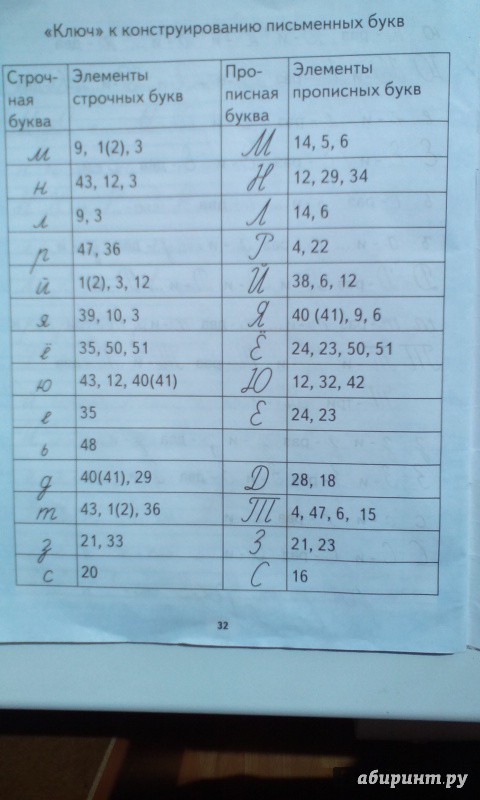 «Ключ» к конструированию письменных букв
Строч-
ная
буква
Элементы
строчных букв
Про-
писная
буква
Элементы
прописных букв
м 9, 1(2), 3 М 14, 5, 6
н 43, 12, 3 Н 12, 29, 34
л 9, 3 Л 14, 6
р 47, 36 Р 4, 22
й 1(2), 3, 12 Й 38, 6, 12
я 39, 10, 3 Я 40 (41), 9, 6
ё 35, 50, 51 Ё 24, 23, 50, 51
ю 43, 12, 40(41) Ю 12, 32, 42
е 35 Е 24, 23
ь 48
д 40(41), 29 Д 28, 18
т 43, 1(2), 36 Т 4, 47, 6, 15
з 21, 33 З 21, 23
с 20 С 16
32
абиринт.ру